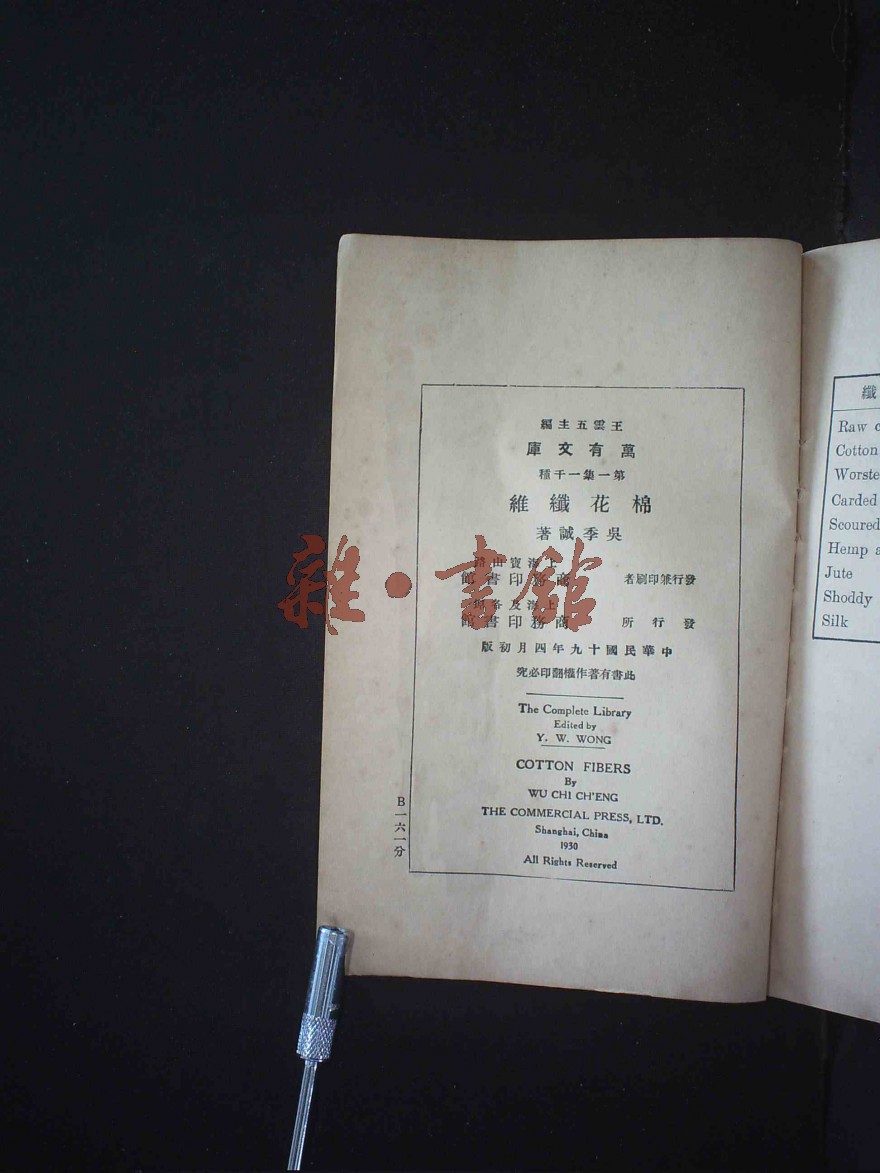 王雲五主編
萬有文庫
第一集一千種
棉花纖維
吳季誠著
上海寶山路
發行兼印刷者 商務印書館
上海及各埠
發行所 商務印書館
中華民國十九年四月初版
此書有著作權翻印必究
The Complete Library
Edited by
Y. W. WONG
COTTON FIBERS
By
WU CHI CH'ENG
THE COMMERCIAL PRESS, LTD.
Shanghai, China
1930
All Rights Reserved
B一六一分
雜·書館
纖
Raw
Cotton
Carded
Scoured
Hemp
Jute
Shoddy
Silk